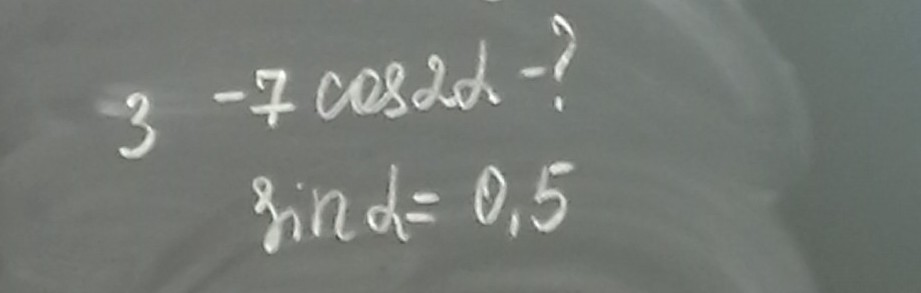 3 -7 cos2α -?
sin α = 0,5